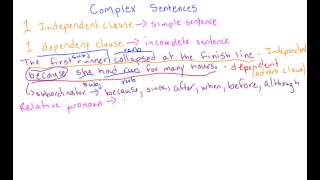 Complex Sentences
1 Independent clause → simple sentence
1 dependent clause → incomplete sentence
subj verb
The first runner collapsed at the finish line - Independent
because she had run for many hours. - dependent
subj verb (adverb clause)
↳ subordinator → because, since, after, when, before, although
Relative pronoun →